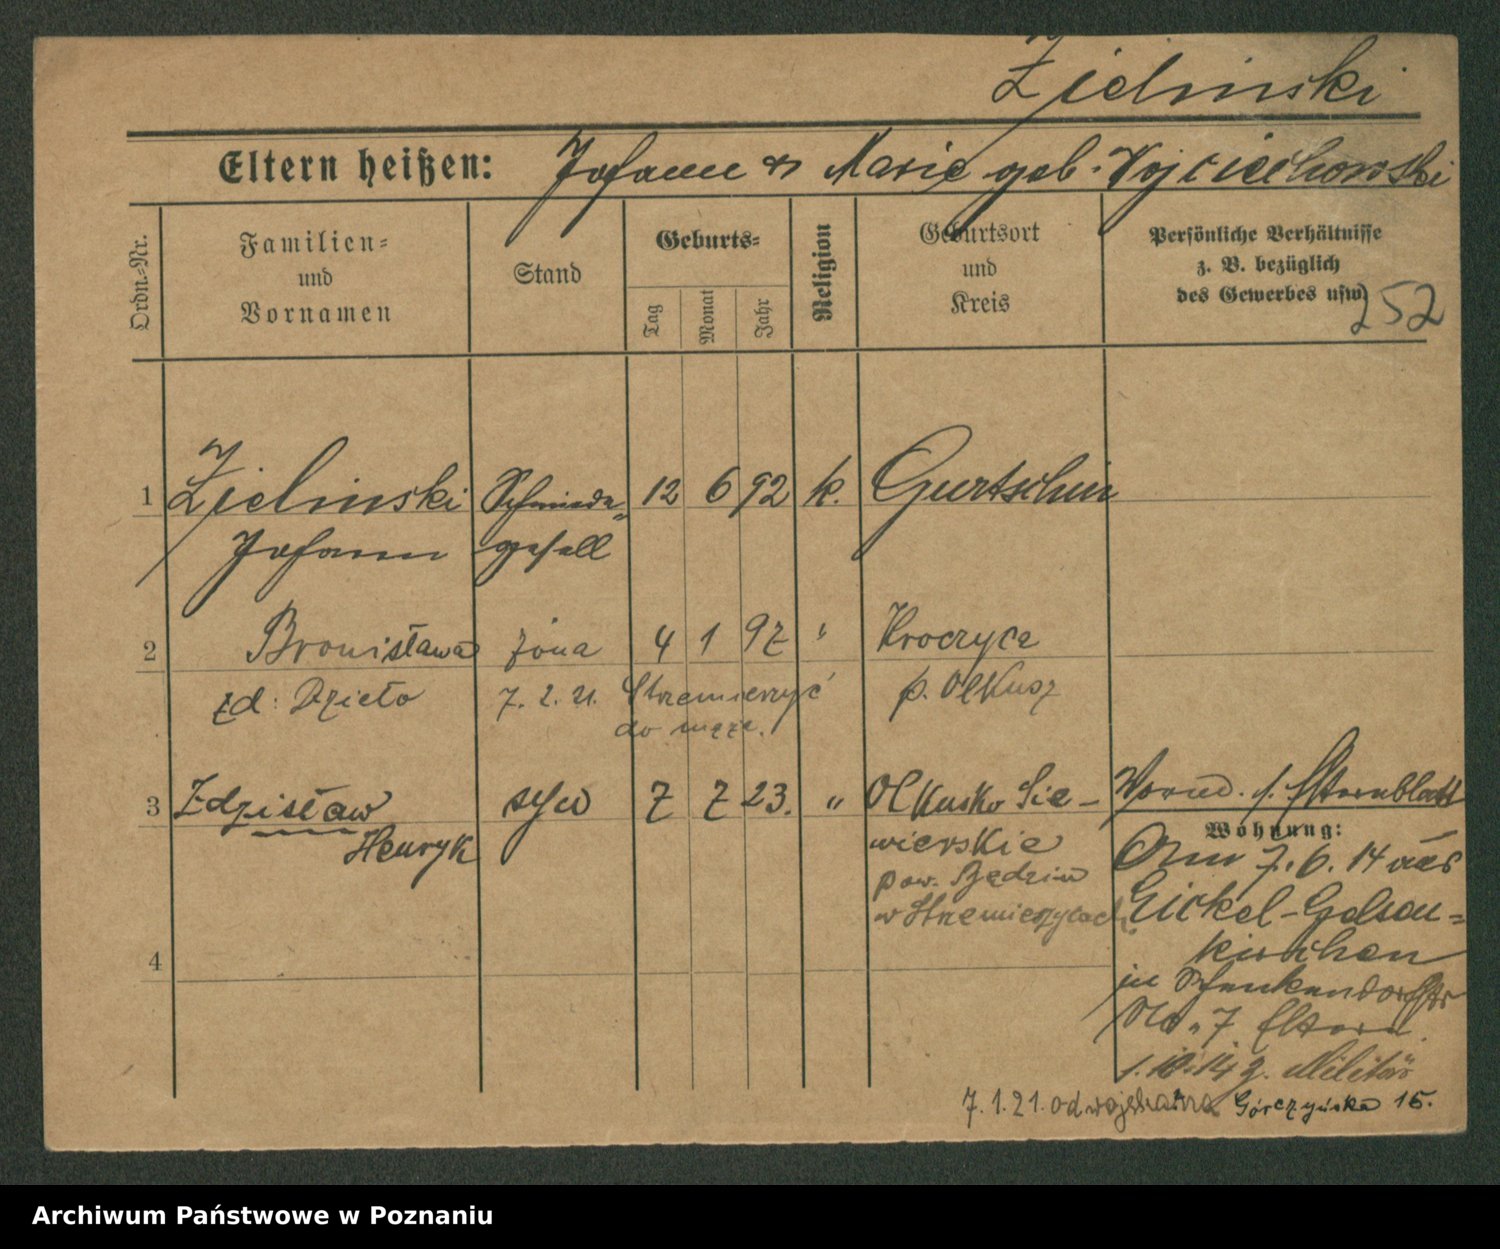 Zielinski
Eltern heißen: Johann & Marie geb. Wojciechowski
Ordn.=Nr.
Familien=
und
Vornamen
Stand
Geburts=
Tag
Monat
Jahr
Religion
Geburtsort
und
Kreis
Persönliche Verhältnisse
z. B. bezüglich
des Gewerbes usw.
252
1 Zielinski Schmiede= 12 6 92 k. Gurtschin
Johann gesell
2 Bronisława żona 4 1 97 " Kroczyce
zd: Dzieło 7. 2. 21. Strzemieszyc p. Olkusz
do męża.
3 Zdzisław syn 7 7 23. " Olkusko Sie-
Henryk wierskie
pow. Będzin
w Strzemieszycach
4
Vorwd. s. Elternblatt
Wohnung:
Am 7. 6. 14 aus
Eickel-Gelsen=
kirchen
in Schenkendorffstr
No. 7 Eltern
1. 10. 14 z. Militär
7. 1. 21. od wojska na Górczyńska 15.
Archiwum Państwowe w Poznaniu